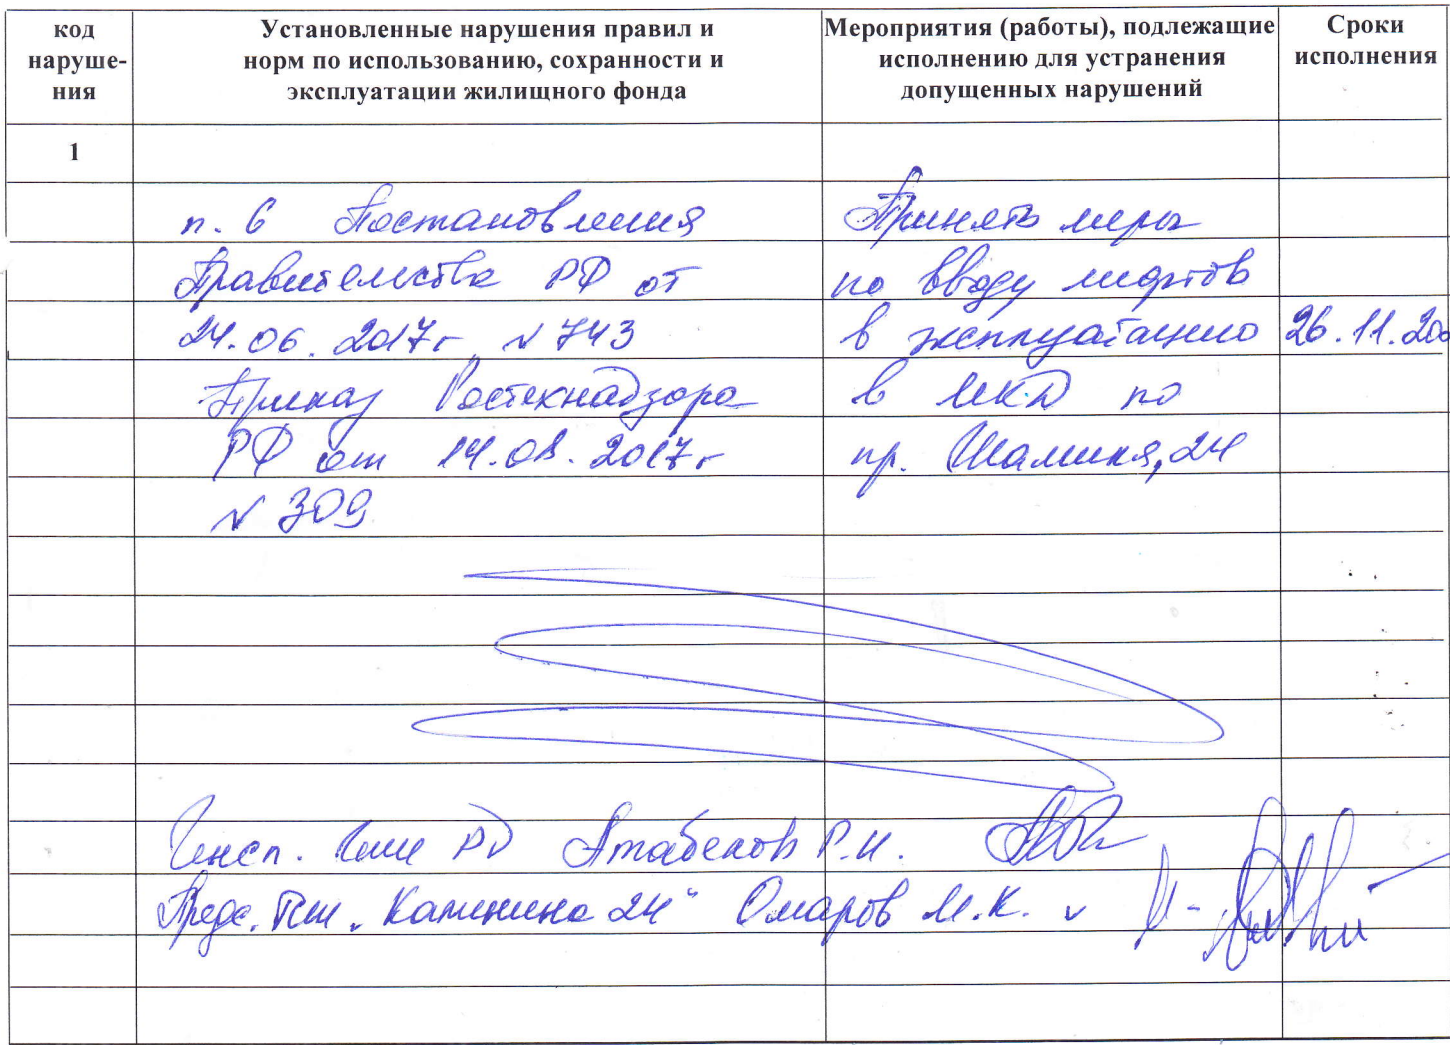 код наруше-ния
Установленные нарушения правил и
норм по использованию, сохранности и
эксплуатации жилищного фонда
Мероприятия (работы), подлежащие
исполнению для устранения
допущенных нарушений
Сроки
исполнения
1
п. 6 Постановления
Правительства РФ от
24.06.2017г №743
Приказ Ростехнадзора
РФ от 14.08.2017г
№ 309
Принять меры
по вводу лифтов
в эксплуатацию
в МКД по
пр. Шамиля, 24
26.11.20
Инсп. РД Атабеков Р.И.
Предс. "Калинина 24" Омаров М.К.